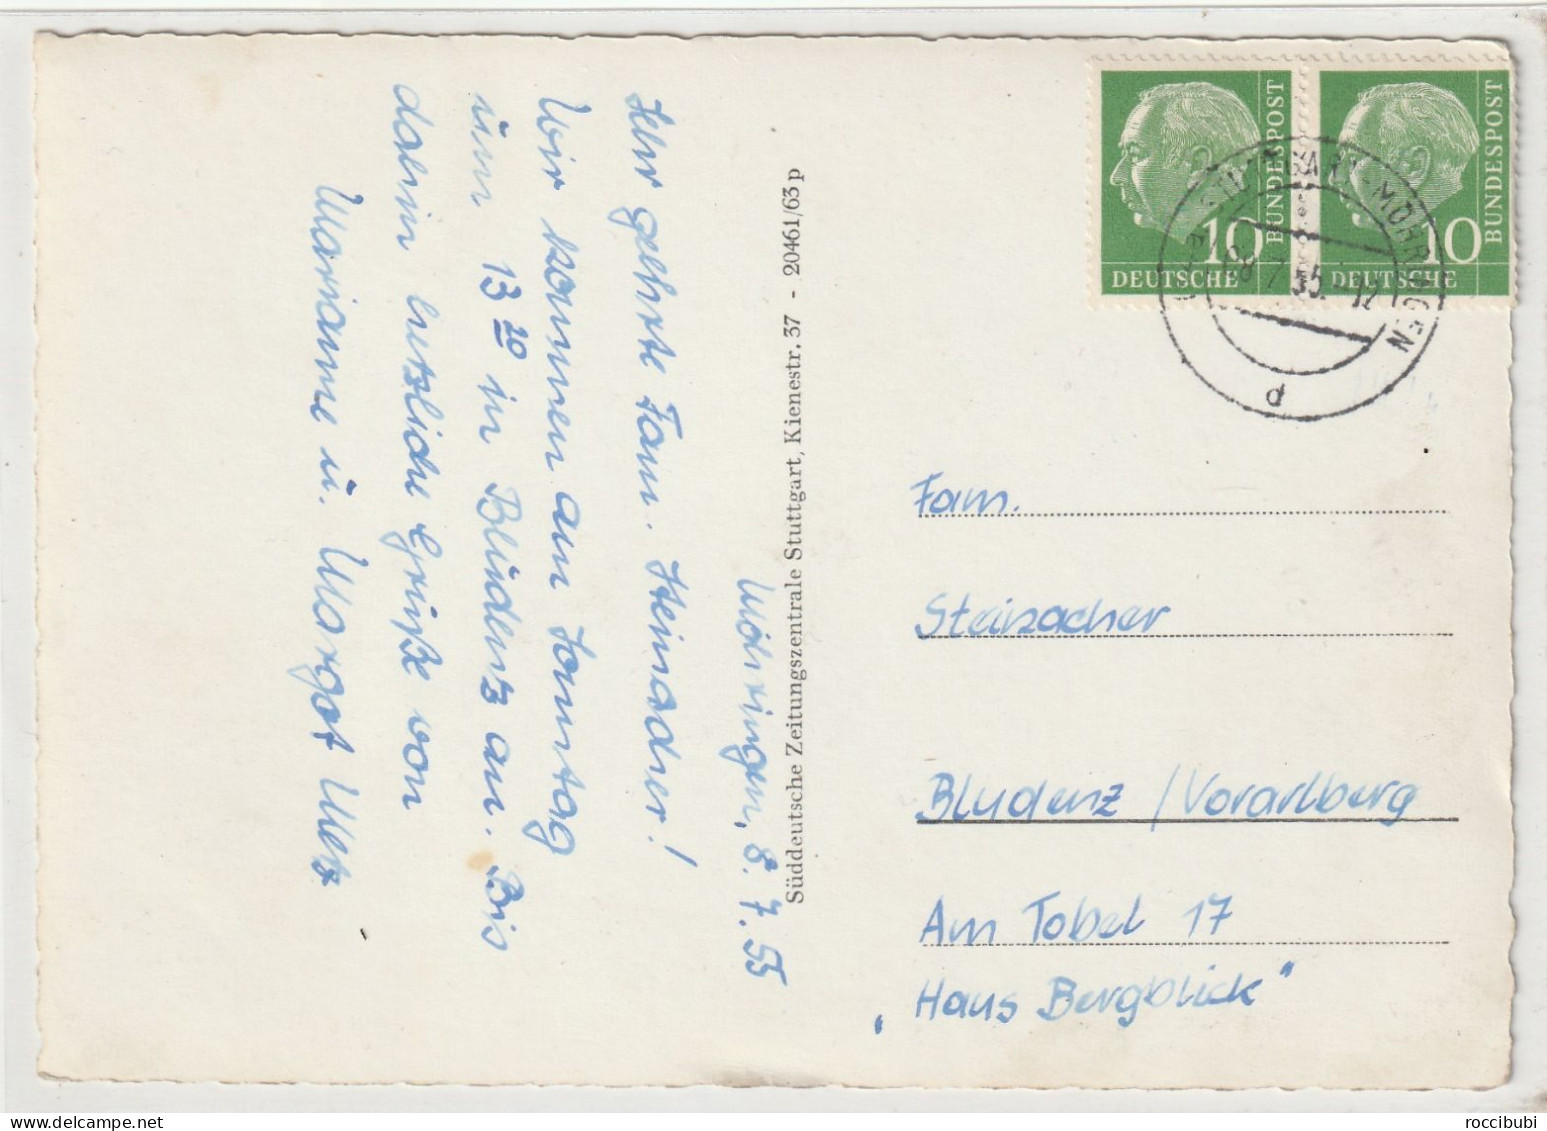 Möhringen, 8. 7. 55
Sehr geehrte Fam. Steinacher!
Wir kommen am Sonntag
um 13 20 in Bludenz an. Bis
dahin herzliche Grüße von
Marianne u. Margot Metz
Süddeutsche Zeitungszentrale Stuttgart, Kienestr. 37 - 20461/63 p
10
DEUTSCHE
BUNDESPOST
10
DEUTSCHE
BUNDESPOST
STUTTGART-MÖHRINGEN
-8.7.55.-12
d
Fam.
Steinacher
Bludenz / Vorarlberg
Am Tobel 17
„Haus Bergblick"
roccibubi